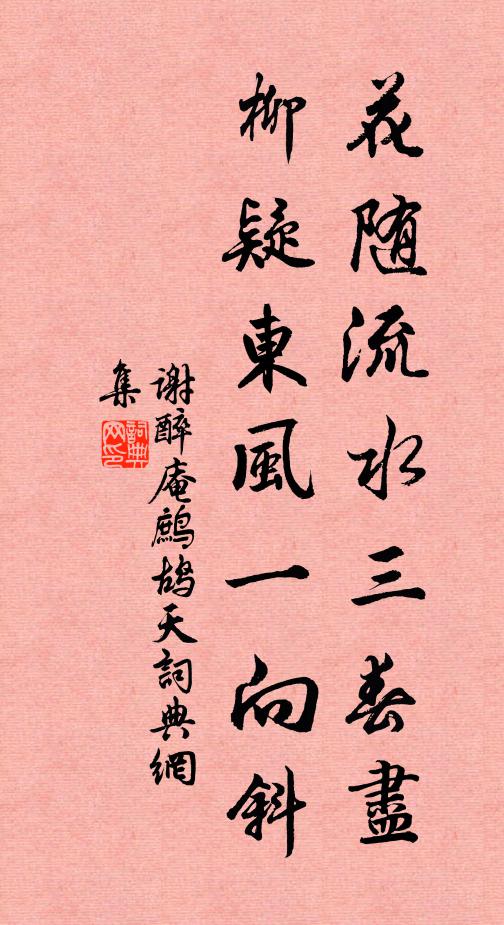 花随流水三春盡
柳疑東風一向斜
謝醉庵鷓鴣天詞典網
集
詞典网印